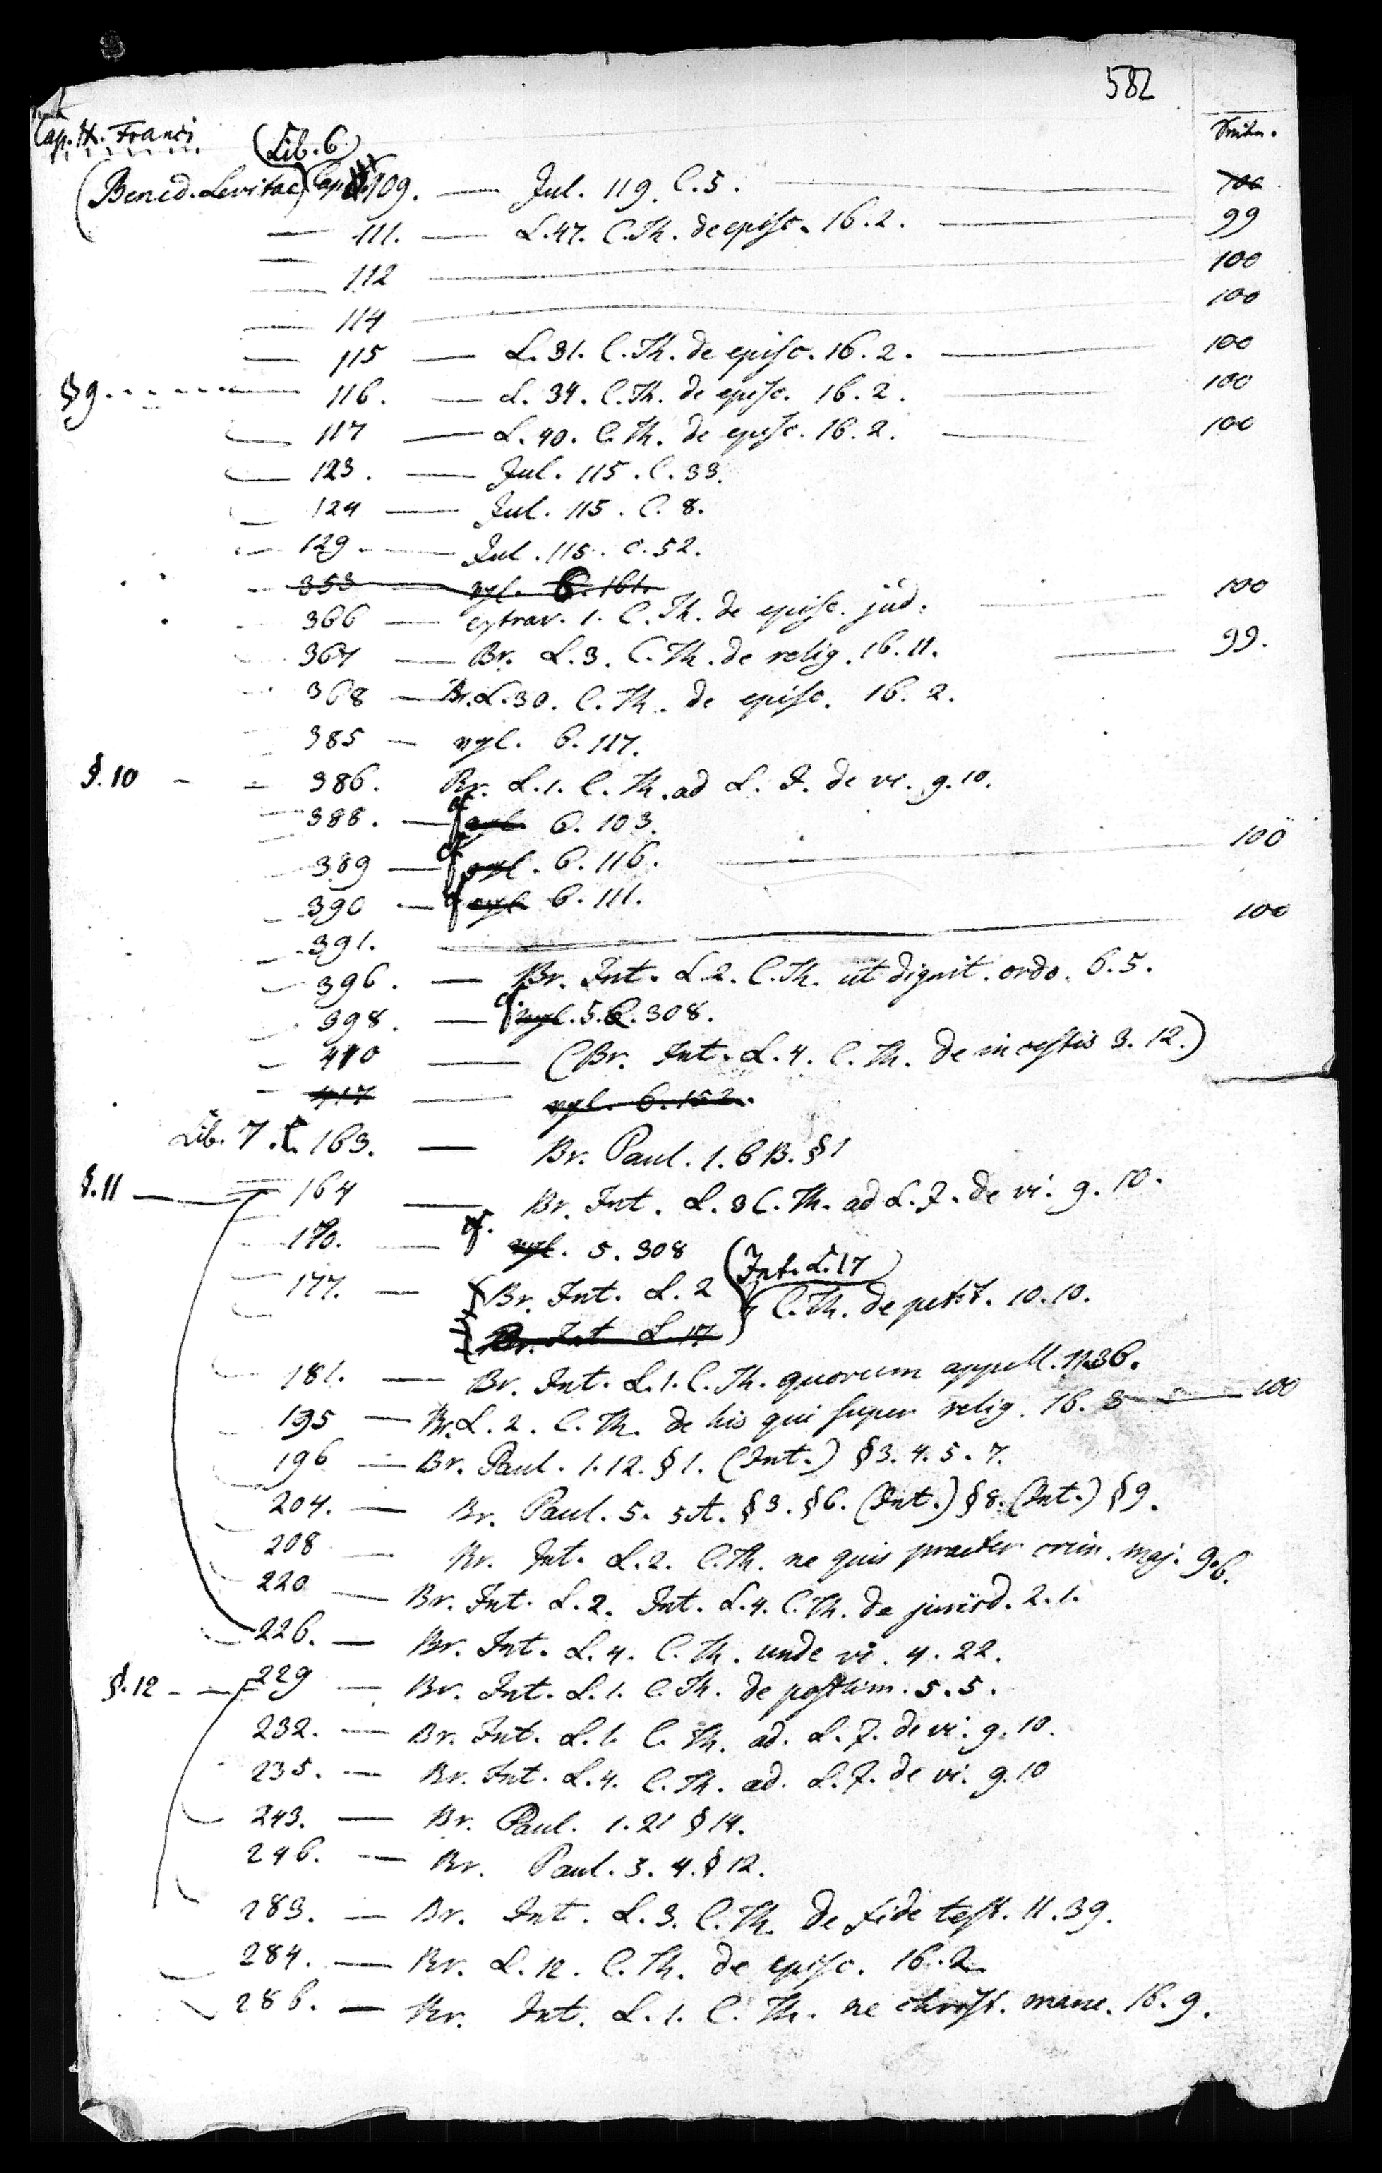 582
Cap. R. Franci
(Lib. 6)
(Bened. Levitae) Cap. 109. — Jul. 119. C. 5. — 100
— 111. — L. 47. C. Th. de episc. 16. 2. — 99
— 112 — 100
— 114 — 100
— 115 — L. 31. C. Th. de episc. 16. 2. — 100
§ 9 — 116. — L. 34. C. Th. de episc. 16. 2. — 100
— 117 — L. 40. C. Th. de episc. 16. 2. — 100
— 123. — Jul. 115. C. 33.
— 124 — Jul. 115. C. 8.
— 129 — Jul. 115. C. 52.
— 353 — vgl. 6. 161.
— 366 — extrav. 1. C. Th. de episc. jud. — 100
— 367 — Br. L. 3. C. Th. de relig. 16. 11. — 99.
— 368 — Br. L. 30. C. Th. de episc. 16. 2.
— 385 — vgl. 6. 117.
§. 10 — 386. Br. L. 1. C. Th. ad L. J. de vi. 9. 10.
— 388. — cf. vgl. 6. 103.
— 389 — cf. vgl. 6. 116. — 100
— 390 — cf. vgl. 6. 111.
— 391. — 100
— 396. — Br. Int. L. 2. C. Th. ut dignit. ordo. 6. 5.
— 398. — cf. vgl. 5. C. 308.
— 410 — (Br. Int. L. 4. C. Th. de incestis 3. 12.)
— 417 — vgl. 6. 152.
Lib. 7. C. 163. — Br. Paul. 1. 6 B. § 1
§. 11 — 164 — Br. Int. L. 3 C. Th. ad L. J. de vi. 9. 10.
— 170. — cf. vgl. 5. 308
— 177. — Br. Int. L. 2 (Int. L. 17) C. Th. de petit. 10. 10.
Br. Int L. 17
— 181. — Br. Int. L. 1. C. Th. quorum appell. 11. 36.
— 195 — Br. L. 2. C. Th. de his qui super relig. 16. — 100
— 196 — Br. Paul. 1. 12. § 1. (Int.) § 3. 4. 5. 7.
— 204. — Br. Paul. 5. 5 A. § 3. § 6. (Int.) § 8. (Int.) § 9.
— 208 — Br. Int. L. 2. C. Th. ne quis praeter crim. maj. 9. 6.
— 220 — Br. Int. L. 2. Int. L. 4. C. Th. de jurisd. 2. 1.
— 226. — Br. Int. L. 4. C. Th. unde vi. 4. 22.
§. 12 — 229 — Br. Int. L. 1. C. Th. de postlim. 5. 5.
232. — Br. Int. L. 1. C. Th. ad. L. J. de vi. 9. 10.
235. — Br. Int. L. 4. C. Th. ad. L. J. de vi. 9. 10
243. — Br. Paul. 1. 21 § 14.
246. — Br. Paul. 3. 4. § 12.
283. — Br. Int. L. 3. C. Th. de fide test. 11. 39.
284. — Br. L. 12. C. Th. de episc. 16. 2
286. — Br. Int. L. 1. C. Th. ne christ. manc. 16. 9.